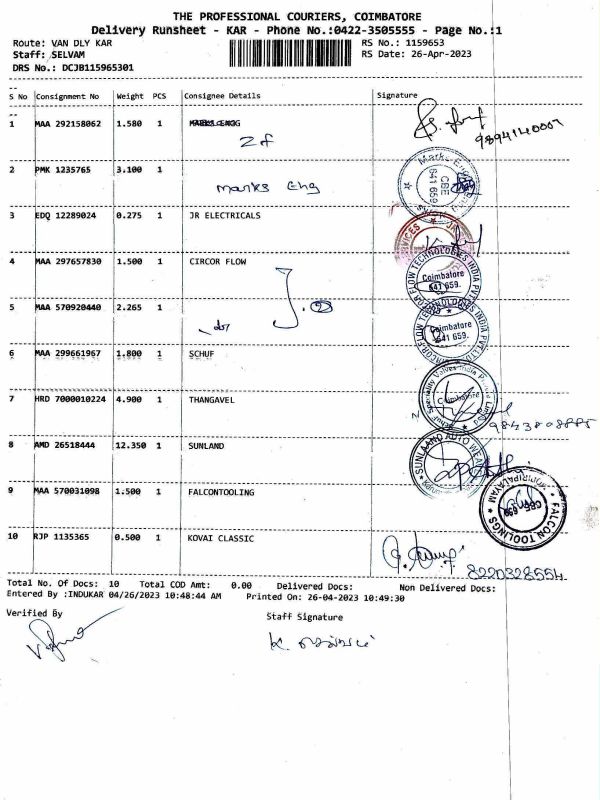 THE PROFESSIONAL COURIERS, COIMBATORE
Delivery Runsheet - KAR - Phone No.:0422-3505555 - Page No.:1
Route: VAN DLY KAR RS No.: 1159653
Staff: SELVAM RS Date: 26-Apr-2023
DRS No.: DCJB115965301
S No Consignment No Weight PCS Consignee Details Signature
1 MAA 292158062 1.580 1
9894140007
2 PMK 1235765 3.100 1
Marks Eng
3 EDQ 12289024 0.275 1 JR ELECTRICALS
4 MAA 297657830 1.500 1 CIRCOR FLOW
Coimbatore
641 659.
5 MAA 570920440 2.265 1
Coimbatore
641 659.
6 MAA 299661967 1.800 1 SCHUF
7 HRD 7000010224 4.900 1 THANGAVEL
Coimbatore
8 AMD 26518444 12.350 1 SUNLAND
9 MAA 570031098 1.500 1 FALCONTOOLING
FALCON TOOLINGS
10 RJP 1135365 0.500 1 KOVAI CLASSIC
8220328554
Total No. Of Docs: 10 Total COD Amt: 0.00 Delivered Docs: Non Delivered Docs:
Entered By :INDUKAR 04/26/2023 10:48:44 AM Printed On: 26-04-2023 10:49:30
Verified By Staff Signature